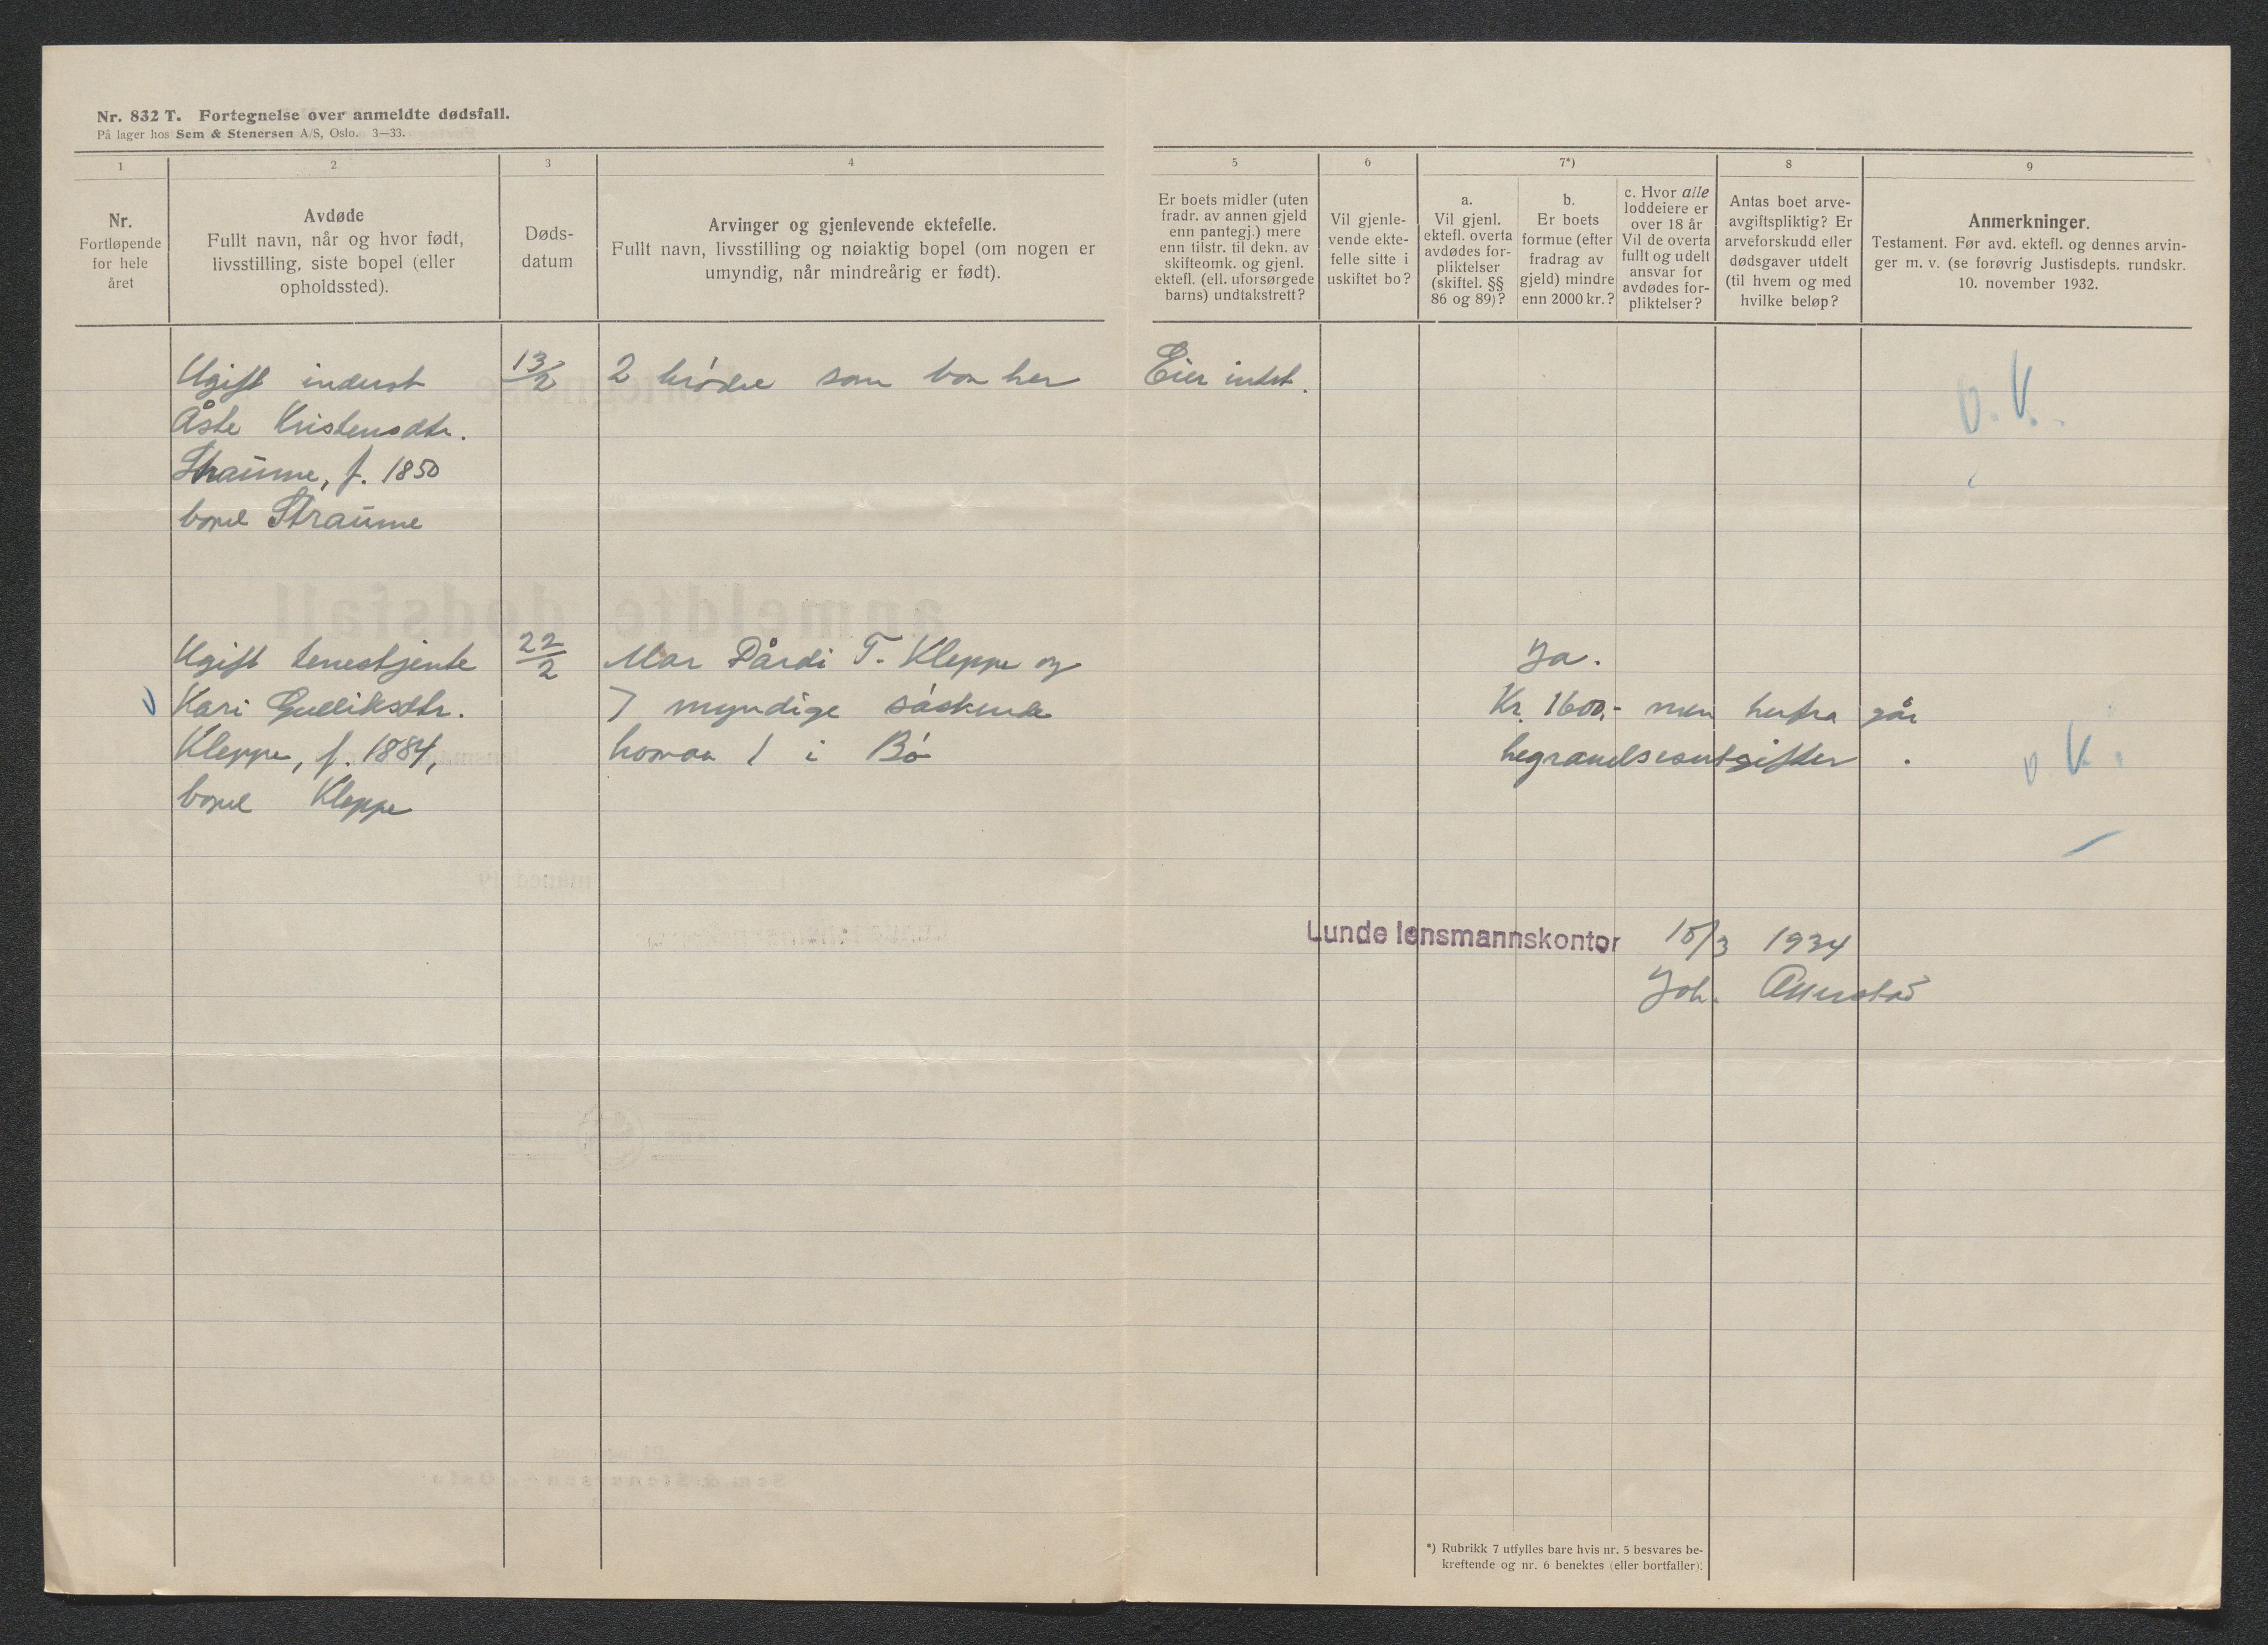 Nr. 832 T. Fortegnelse over anmeldte dødsfall.
På lager hos Sem & Stenersen A/S, Oslo. 3—33.
1
2
3
4
5
6
7*)
8
9
Nr.
Fortløpende
for hele
året
Avdøde
Fullt navn, når og hvor født,
livsstilling, siste bopel (eller
opholdssted).
Døds-
datum
Arvinger og gjenlevende ektefelle.
Fullt navn, livsstilling og nøiaktig bopel (om nogen er
umyndig, når mindreårig er født).
Er boets midler (uten
fradr. av annen gjeld
enn pantegj.) mere
enn tilstr. til dekn. av
skifteomk. og gjenl.
ektefl. (ell. uforsørgede
barns) undtakstrett?
Vil gjenle-
vende ekte-
felle sitte i
uskiftet bo?
a.
Vil gjenl.
ektefl. overta
avdødes for-
pliktelser
(skiftel. §§
86 og 89)?
b.
Er boets
formue (efter
fradrag av
gjeld) mindre
enn 2000 kr.?
c. Hvor alle
loddeiere er
over 18 år
Vil de overta
fullt og udelt
ansvar for
avdødes for-
pliktelser?
Antas boet arve-
avgiftspliktig? Er
arveforskudd eller
dødsgaver utdelt
(til hvem og med
hvilke beløp?
Anmerkninger.
Testament. Før avd. ektefl. og dennes arvin-
ger m. v. (se forøvrig Justisdepts. rundskr.
10. november 1932.
Ugift inderst
Åste Kristensdtr.
Straume, f. 1850
bopel Straume
13/2
2 brødre som bor her
Eier intet.
o.k.
Ugift tenestjente
Kari Gulliksdtr.
Kleppe, f. 1884,
bopel Kleppe
22/2
Mor Pårdi T. Kleppe og
7 myndige søskende
hvorav 1 i Bø
Ja.
Kr. 1600,- men herfra går
begravelsesutgifter.
o.k.
Lunde lensmannskontor 15/3 1934
Joh.
*) Rubrikk 7 utfylles bare hvis nr. 5 besvares be-
kreftende og nr. 6 benektes (eller bortfaller).